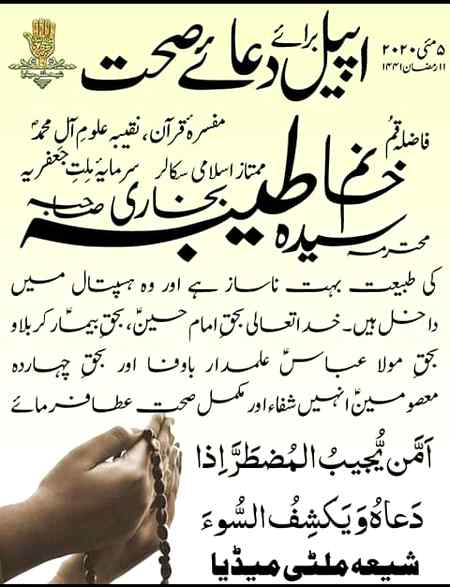 ۵ مئی ۲۰۲۰
۱۱ رمضان ۱۴۴۱
اپیل برائے دعائے صحت
فاضلہ قم
مفسرہ قرآن، نقیبہ علومِ آلِ محمدؐ
ممتاز اسلامی سکالر سرمایۂ ملتِ جعفریہ
محترمہ سیدہ خانم طیبہ بخاری صاحبہ
کی طبیعت بہت ناساز ہے اور وہ ہسپتال میں
داخل ہیں۔ خدا تعالی بحقِ امام حسینؑ، بحقِ بیمارِ کربلا و
بحقِ مولا عباسؑ علمدار باوفا اور بحقِ چہاردہ
معصومینؑ انہیں شفاء اور مکمل صحت عطا فرمائے
اَمَّن یُّجِیبُ المُضطَرَّ اِذا
دَعاہُ وَ یَکشِفُ السُّوءَ
شیعہ ملٹی میڈیا